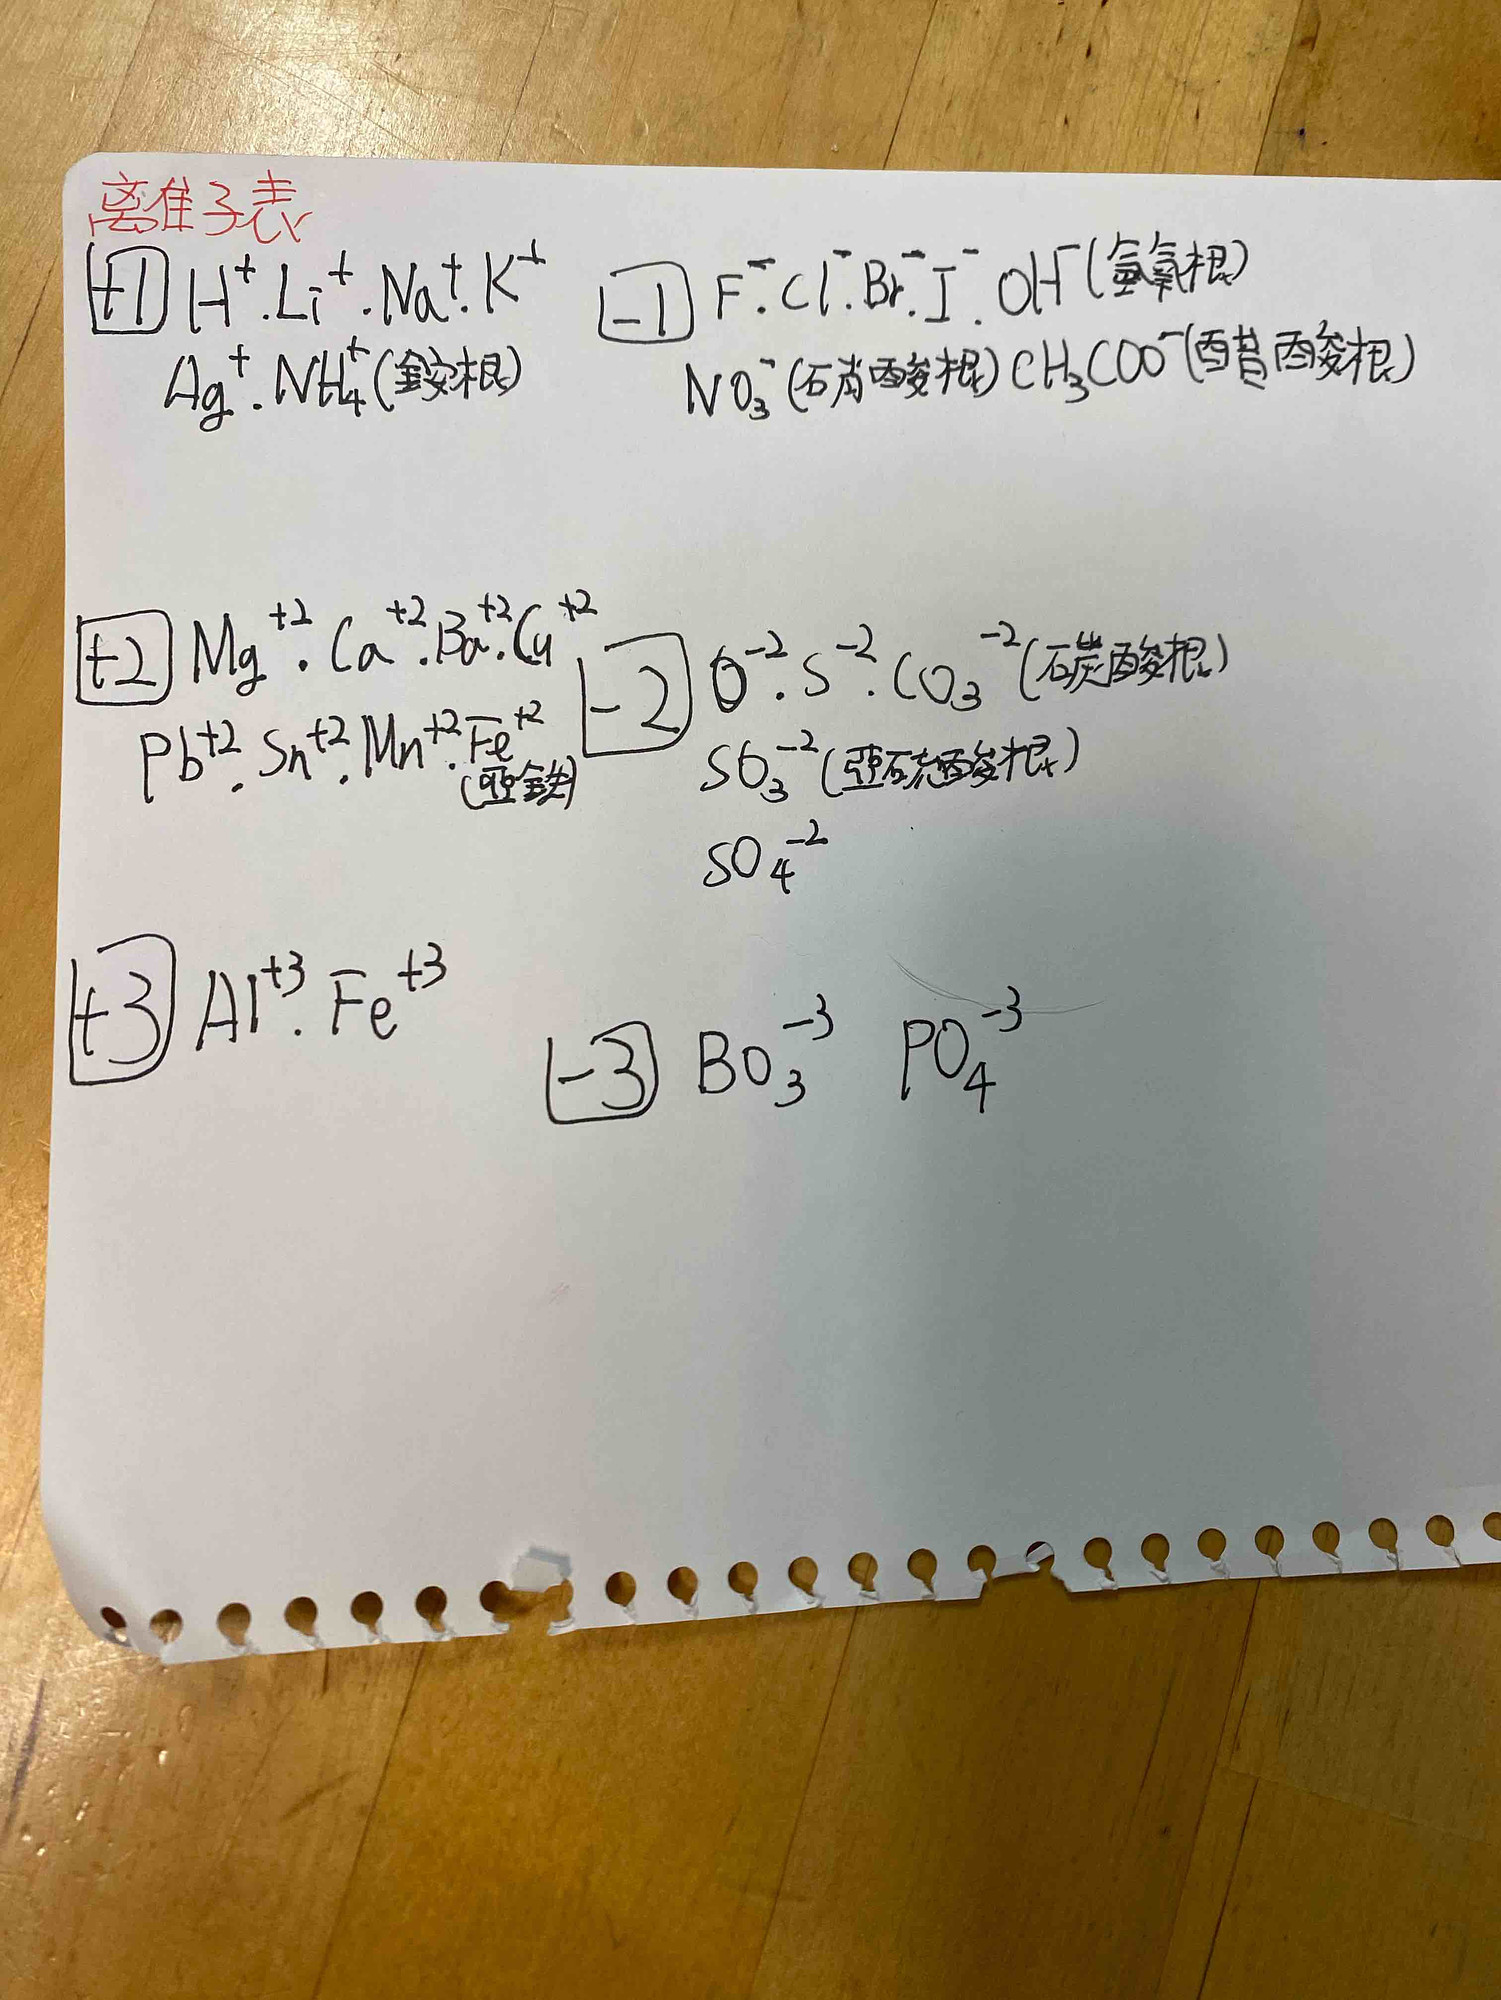 離子表
+1 H⁺.Li⁺.Na⁺.K⁺
Ag⁺.NH₄⁺(銨根)
-1 F⁻.Cl⁻.Br⁻.I⁻.OH⁻(氫氧根)
NO₃⁻(硝酸根) CH₃COO⁻(醋酸根)
+2 Mg⁺².Ca⁺².Ba⁺².Cu⁺²
Pb⁺².Sn⁺².Mn⁺².Fe⁺²
(亞鐵)
-2 O⁻².S⁻².CO₃⁻²(碳酸根)
SO₃⁻²(亞硫酸根)
SO₄⁻²
+3 Al⁺³.Fe⁺³
-3 BO₃⁻³ PO₄⁻³